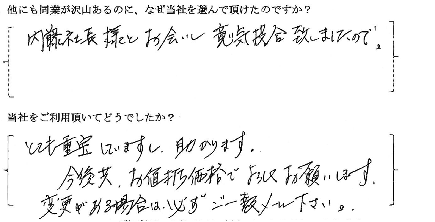 他にも同業が沢山あるのに、なぜ当社を選んで頂けたのですか?
内藤社長様とお会いし意気投合致しましたので。
当社をご利用頂いてどうでしたか?
とても重宝していますし、助かります。
今後共、お値打ち価格でよろしくお願いします。
変更がある場合は必ずご一報メール下さい。